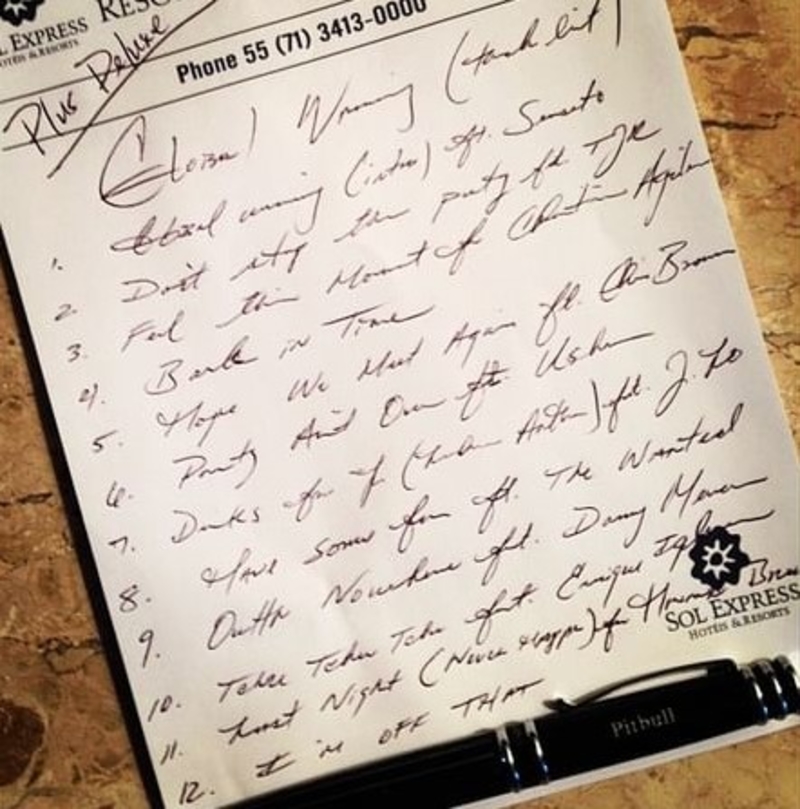 L EXPRESS
HOTÉIS & RESORTS
RESO
Phone 55 (71) 3413-0000
Plus Deluxe
Global Warming (track list)
1. Global warming (intro) ft. Sensato
2. Don't stop the party ft. TJR
3. Feel this Moment ft. Christina Aguilera
4. Back in Time
5. Hope We Meet Again ft. Chris Brown
6. Party Ain't Over ft. Usher
7. Drinks for you (Ladies Anthem) ft. J. Lo
8. Have some fun ft. The Wanted
9. Outta Nowhere ft. Danny Mercer
10. Tchu Tchu Tcha feat. Enrique Iglesias
11. Last Night (Never Happen) ft. Havana Brown
12. I'm OFF THAT
SOL EXPRESS
HOTÉIS & RESORTS
Pitbull